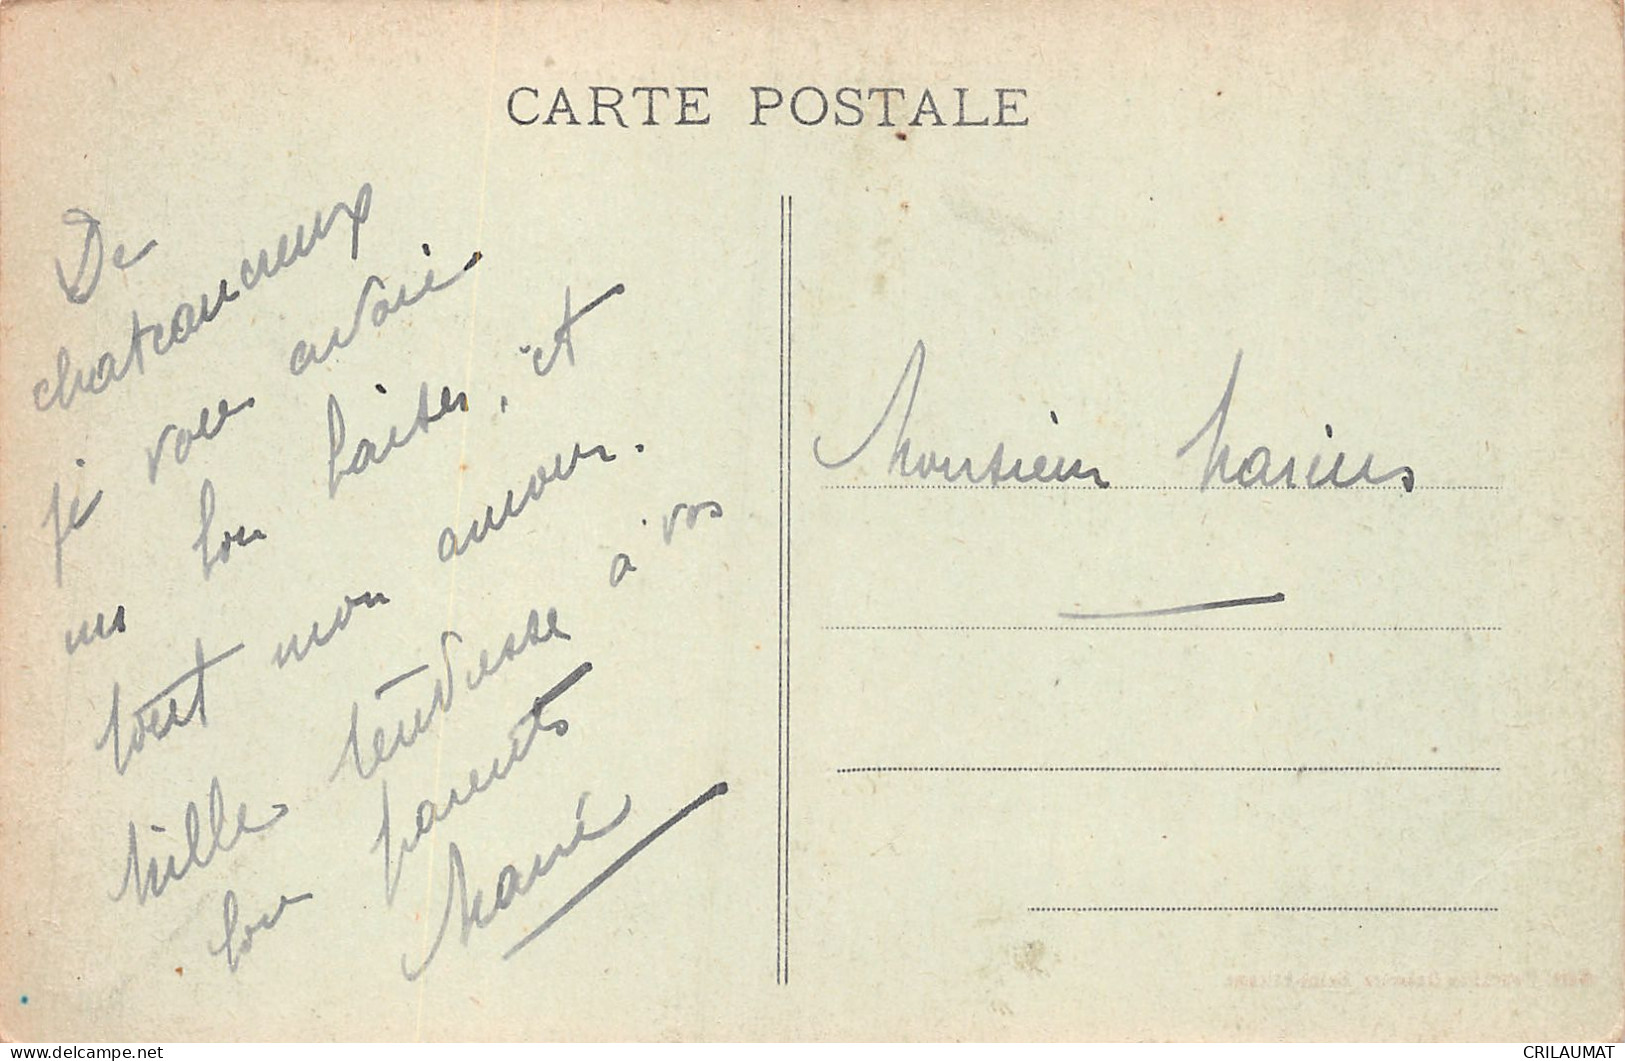 CARTE POSTALE
De
chateaucreux
je vous envoie
un bon baiser, et
tout mon amour.
Mille tendresse à vos
bon parents
Marié
Monsieur Marius
CRILAUMAT